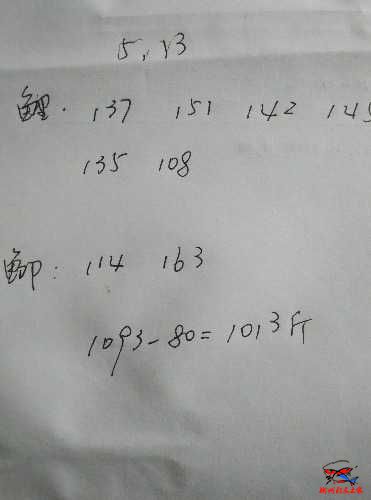 5,13
鲤. 137 151 142 145
135 108
鲫: 114 163
1093-80=1013斤